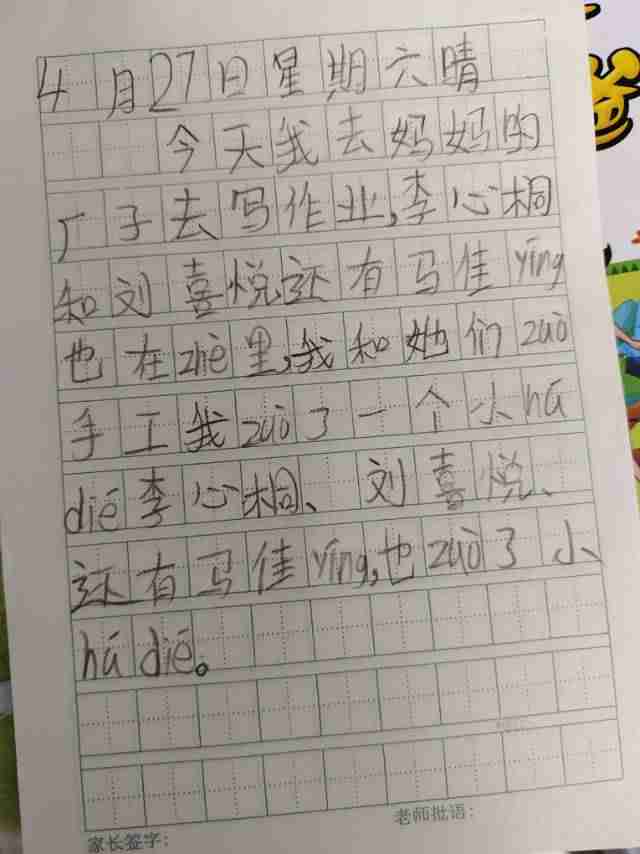 4月27日星期六晴
今天我去妈妈的
厂子去写作业,李心桐
和刘喜悦还有马佳yīng
也在zhè里,我和她们zuò
手工我zuò了一个小hú
dié李心桐、刘喜悦、
还有马佳yīng,也zuò了小
hú dié。
老师批语:
家长签字: